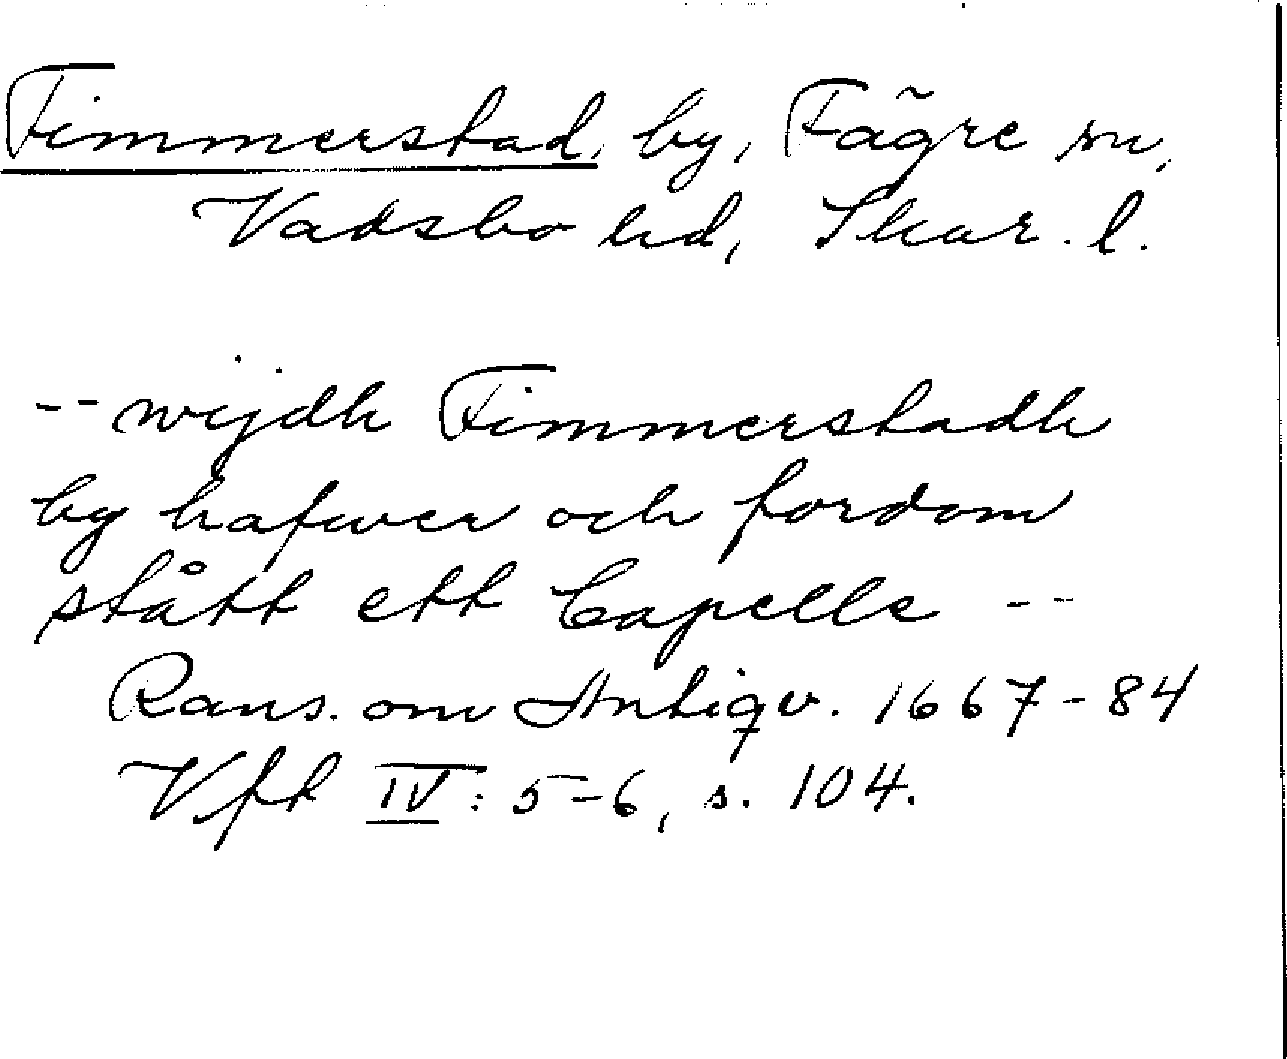 Timmerstad, by, Fägre sn,
Vadsbo hd, Skar. l.
-- wijdh Timmerstadh
by hafwer och fordom
stått ett Capelle --
Rans. om Antiqv. 1667-84
Vfk IV: 5-6, s. 104.